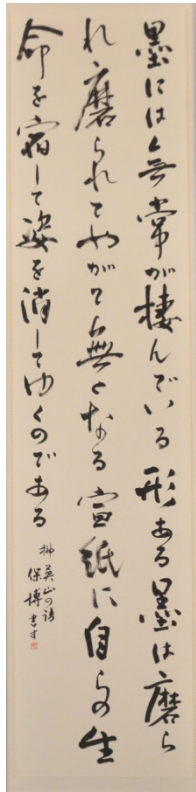 墨には無常が棲んでいる 形ある墨は磨ら
れ磨られてやがて無くなる 宣紙に自らの生
命を宿して姿を消してゆくのである
榊莫山の語
保博書